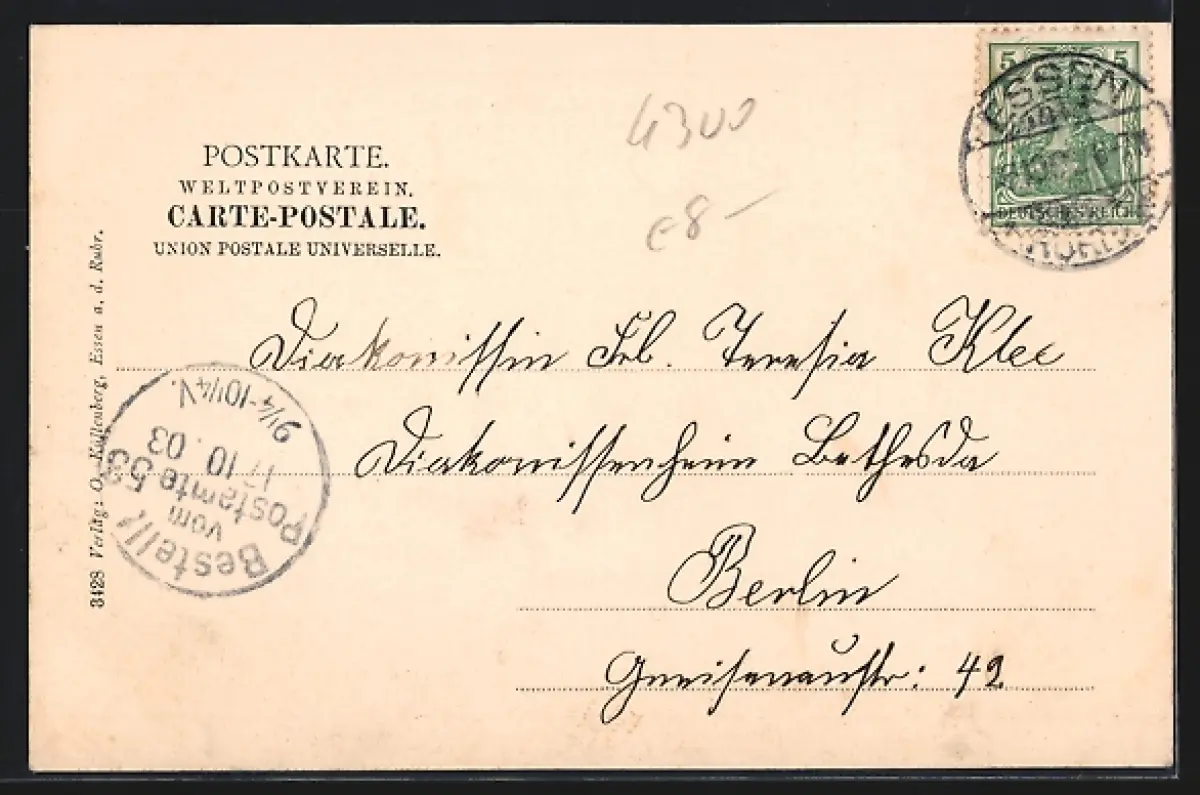 POSTKARTE.
WELTPOSTVEREIN.
CARTE-POSTALE.
UNION POSTALE UNIVERSELLE.
4300
€8-
5 5
DEUTSCHES REICH
ESSEN
Diakonissin Frl. Teresia Klee
Diakonissenheim Bethesda
Berlin
Gneisenaustr: 42
Bestellt
vom
Postamte 53
17 10. 03
9 1/4-10 1/4 V.
3428 Verlag: O. Küllenberg, Essen a. d. Ruhr.